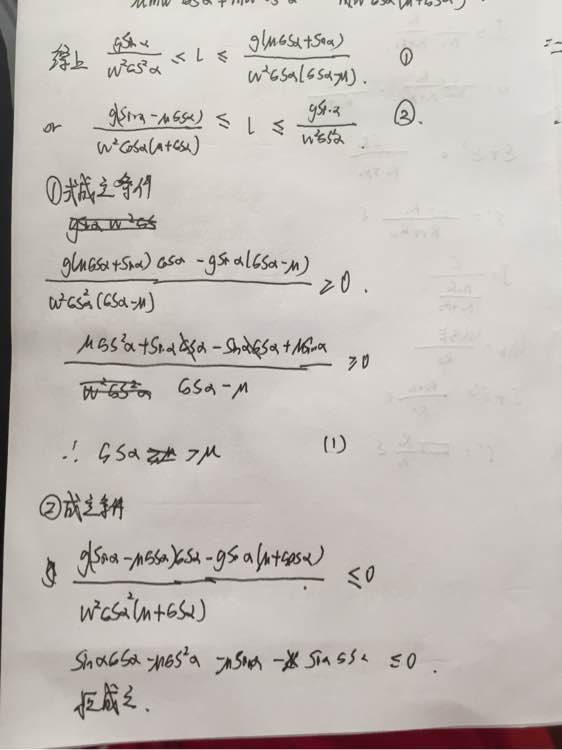 综上 gsinα/w²cos²α ≤ l ≤ g(μcosα+sinα)/w²cosα(cosα-μ). ①
or g(sinα-μcosα)/w²cosα(μ+cosα) ≤ l ≤ gsinα/w²cos²α. ②.
①式成立条件
g(μcosα+sinα)cosα-gsinα(cosα-μ)/w²cos²α(cosα-μ) ≥0.
μcos²α+sinαcosα-sinαcosα+μsinα/cosα-μ ≥0
∴ cosα>μ (1)
②成立条件
g(sinα-μcosα)cosα-gsinα(μ+cosα)/w²cosα²(μ+cosα) ≤0
sinαcosα-μcos²α-μsinα-sinαcosα ≤0.
恒成立.